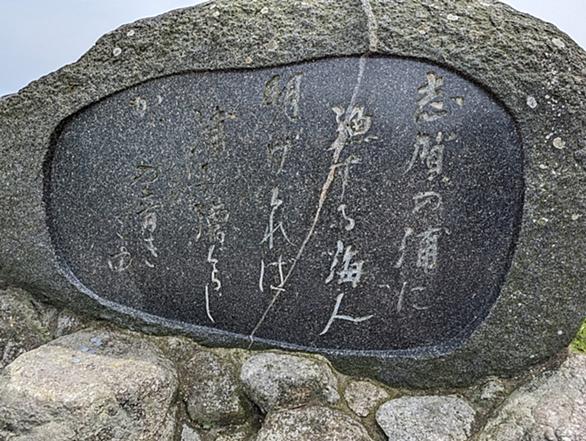 志賀の浦に
漁する海人
明けくれは
浦 漕らし
か の音き
こゆ